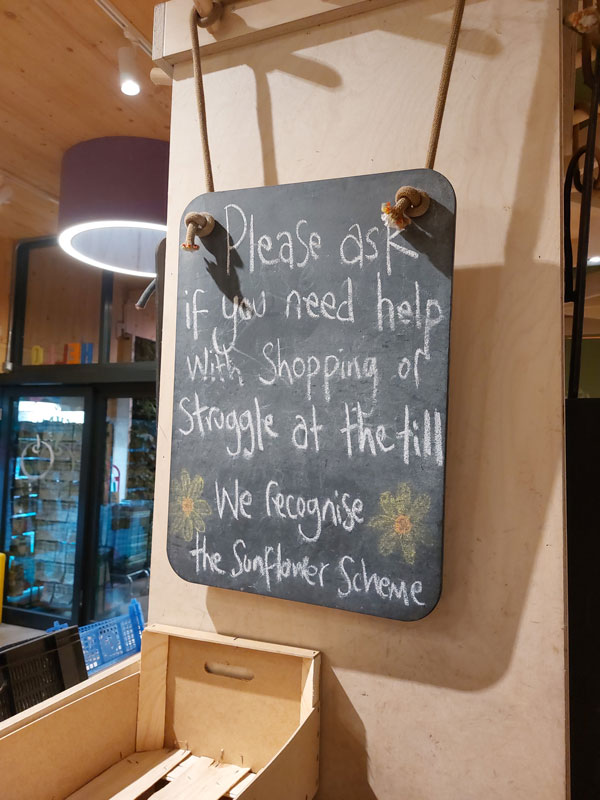 Please ask
if you need help
with shopping or
struggle at the till
We recognise
the Sunflower Scheme